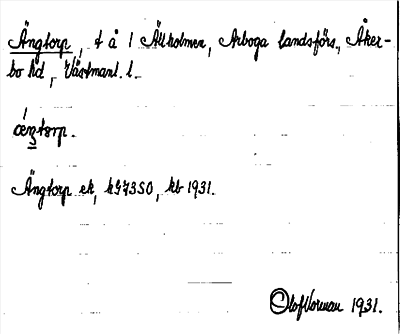 Ängtorp, t å 1 Ällholmen, Arboga landsförs., Åker-
bo hd, Västmanl. l.
æŋtorp.
Ängtorp ek, kb 1931.
Olof Norman 1931.